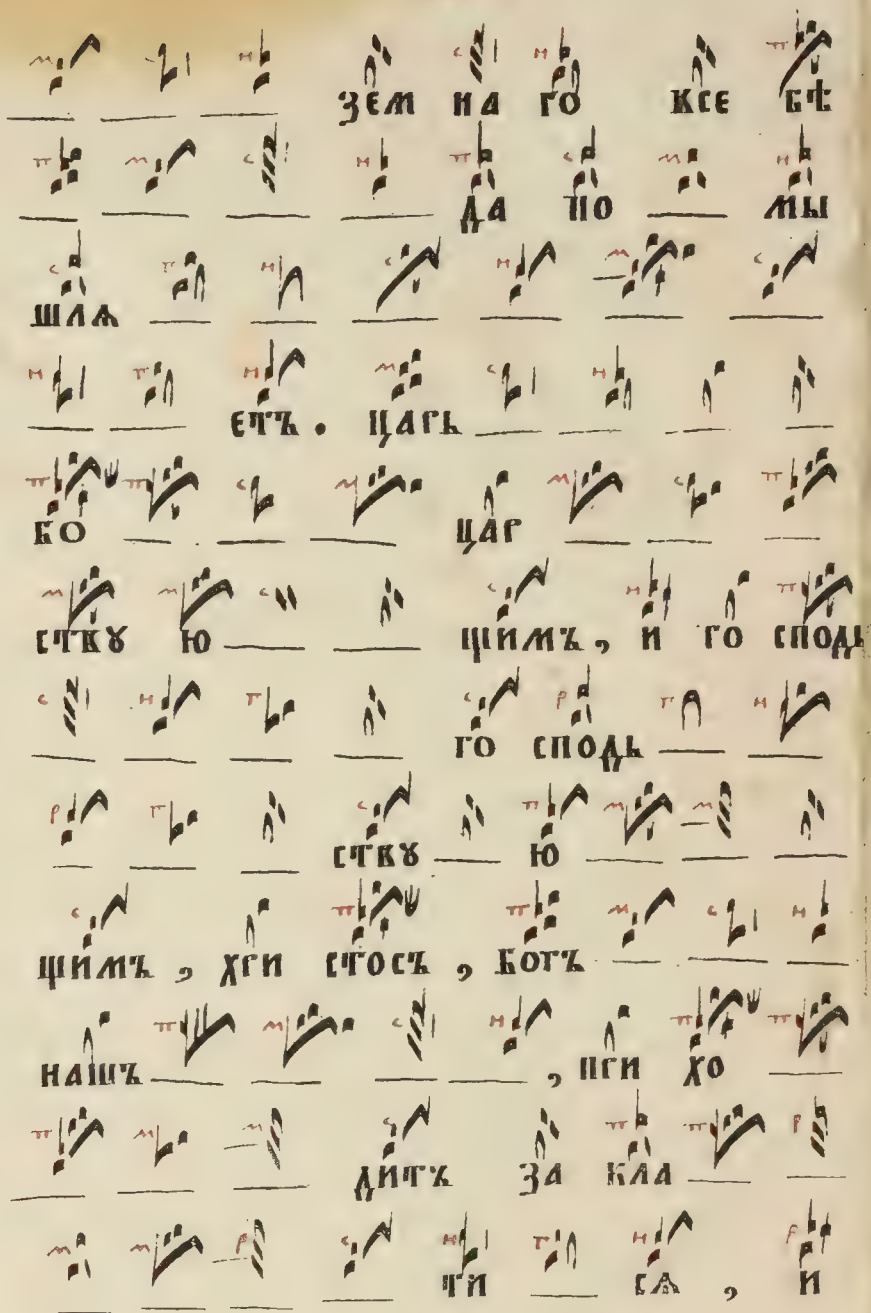 зем на го ксе бѣ
да по мы
шлѧ
етъ . царь
бо цар
ствꙋ ю щимъ , и го сподь
го сподь
ствꙋ ю
щимъ , хри стосъ , богъ
нашъ , при хо
дитъ за кла
ти сѧ , и